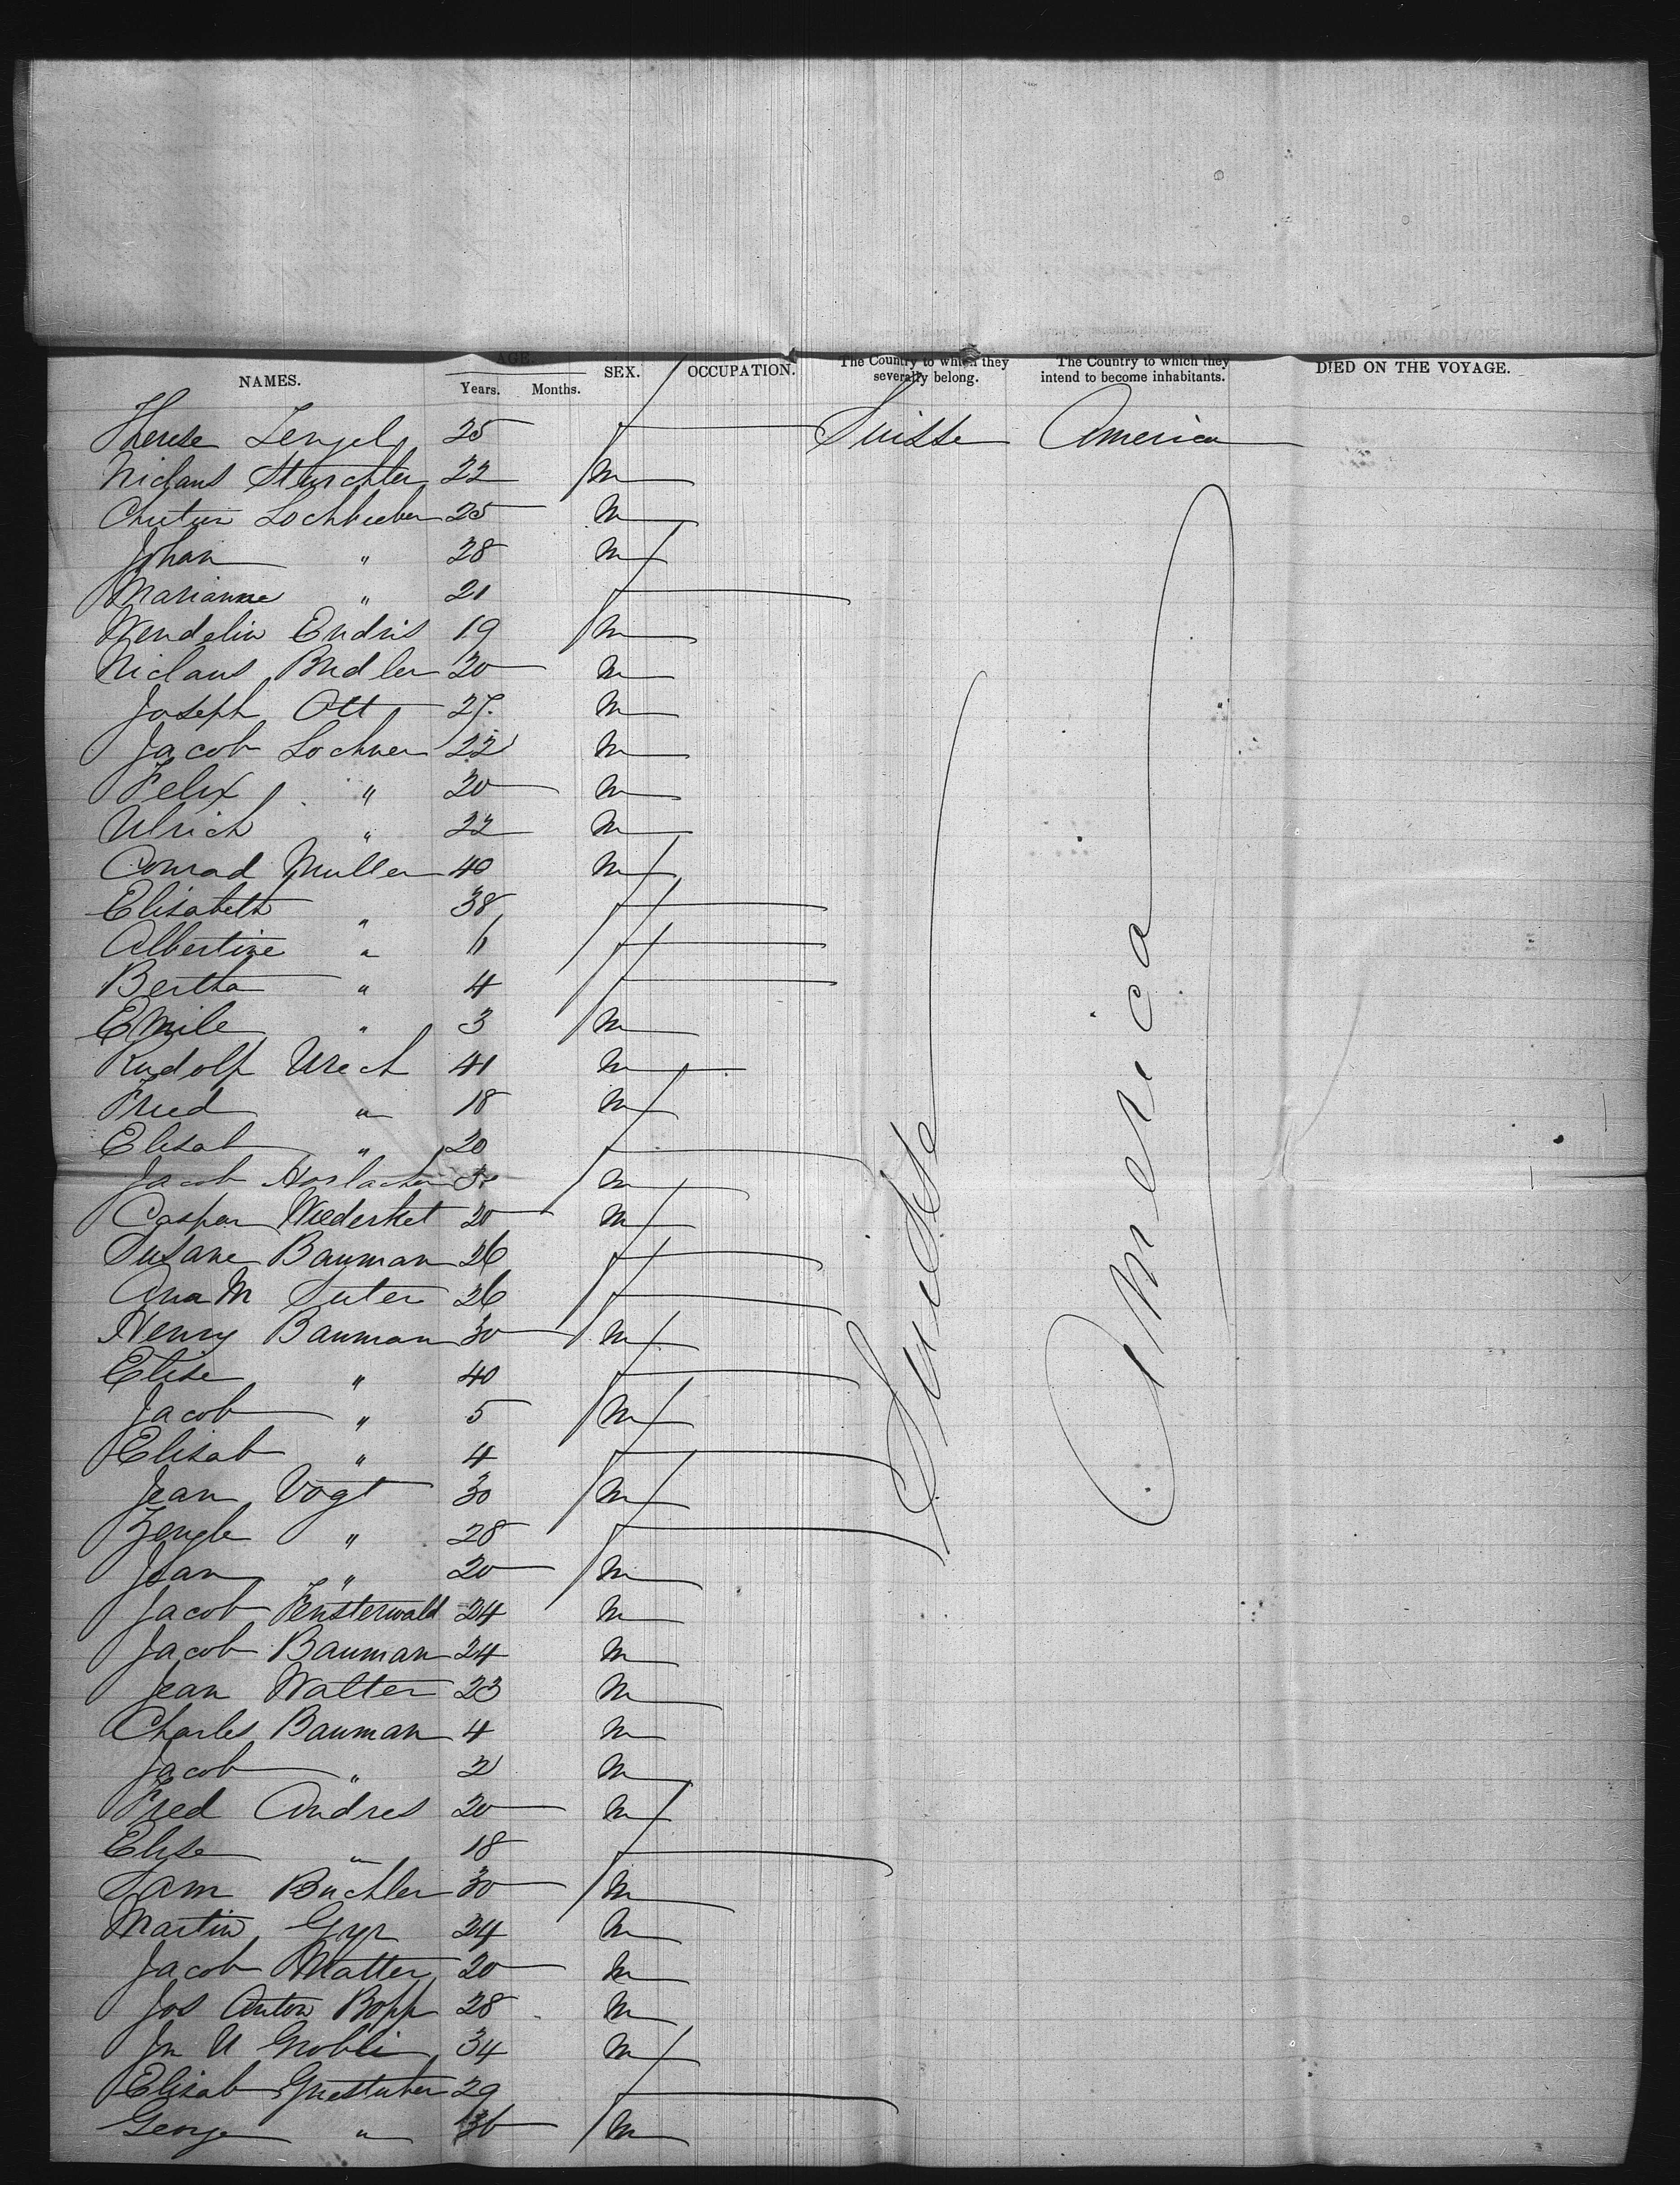 AGE.
NAMES. Years. Months. SEX. OCCUPATION. The Country to which they severally belong. The Country to which they intend to become inhabitants. DIED ON THE VOYAGE.
Therese Zengel 25 f Suisse America
Niclaus Sturchler 22 m
Lochbieber 25 m
Johan " 28 m
Marianne " 21 f
Wendelin Endris 19 m
Niclaus Budler 20 m
Joseph Ott 27. m
Jacob Lochner 22 m
Felix " 20 m
Ulrich " 22 m
Conrad Muller 40 m
Elisabeth " 38 f
Albertine " f
Bertha " 4 f
Emile " 3 m
Rudolf Urech 41 m
Fried " 18 m
Elisab " 20 f
Jacob Horlacher m
Caspar Wiederket 20 m
Susane Bauman 26 f
Ana M Suter 26 f
Henry Bauman 30 m
Elise " 40 f
Jacob " 5 m
Elisab " 4 f
Jean Vogt 30 m
" 28 f
Jean " 20 m
Jacob Fensterwald 24 m
Jacob Bauman 24 m
Jean Walter 23 m
Charles Bauman 4 m
Jacob " 2 m
Fred Andres 20 m
Elise " 18 f
Sam Buchler 30 m
Martin Gyr 24 m
Jacob Matter 20 m
Jos Anton Bopp 28 m
Jn U Grobli 34 m
Elisab 29 f
George " 36 m
Suisse
America